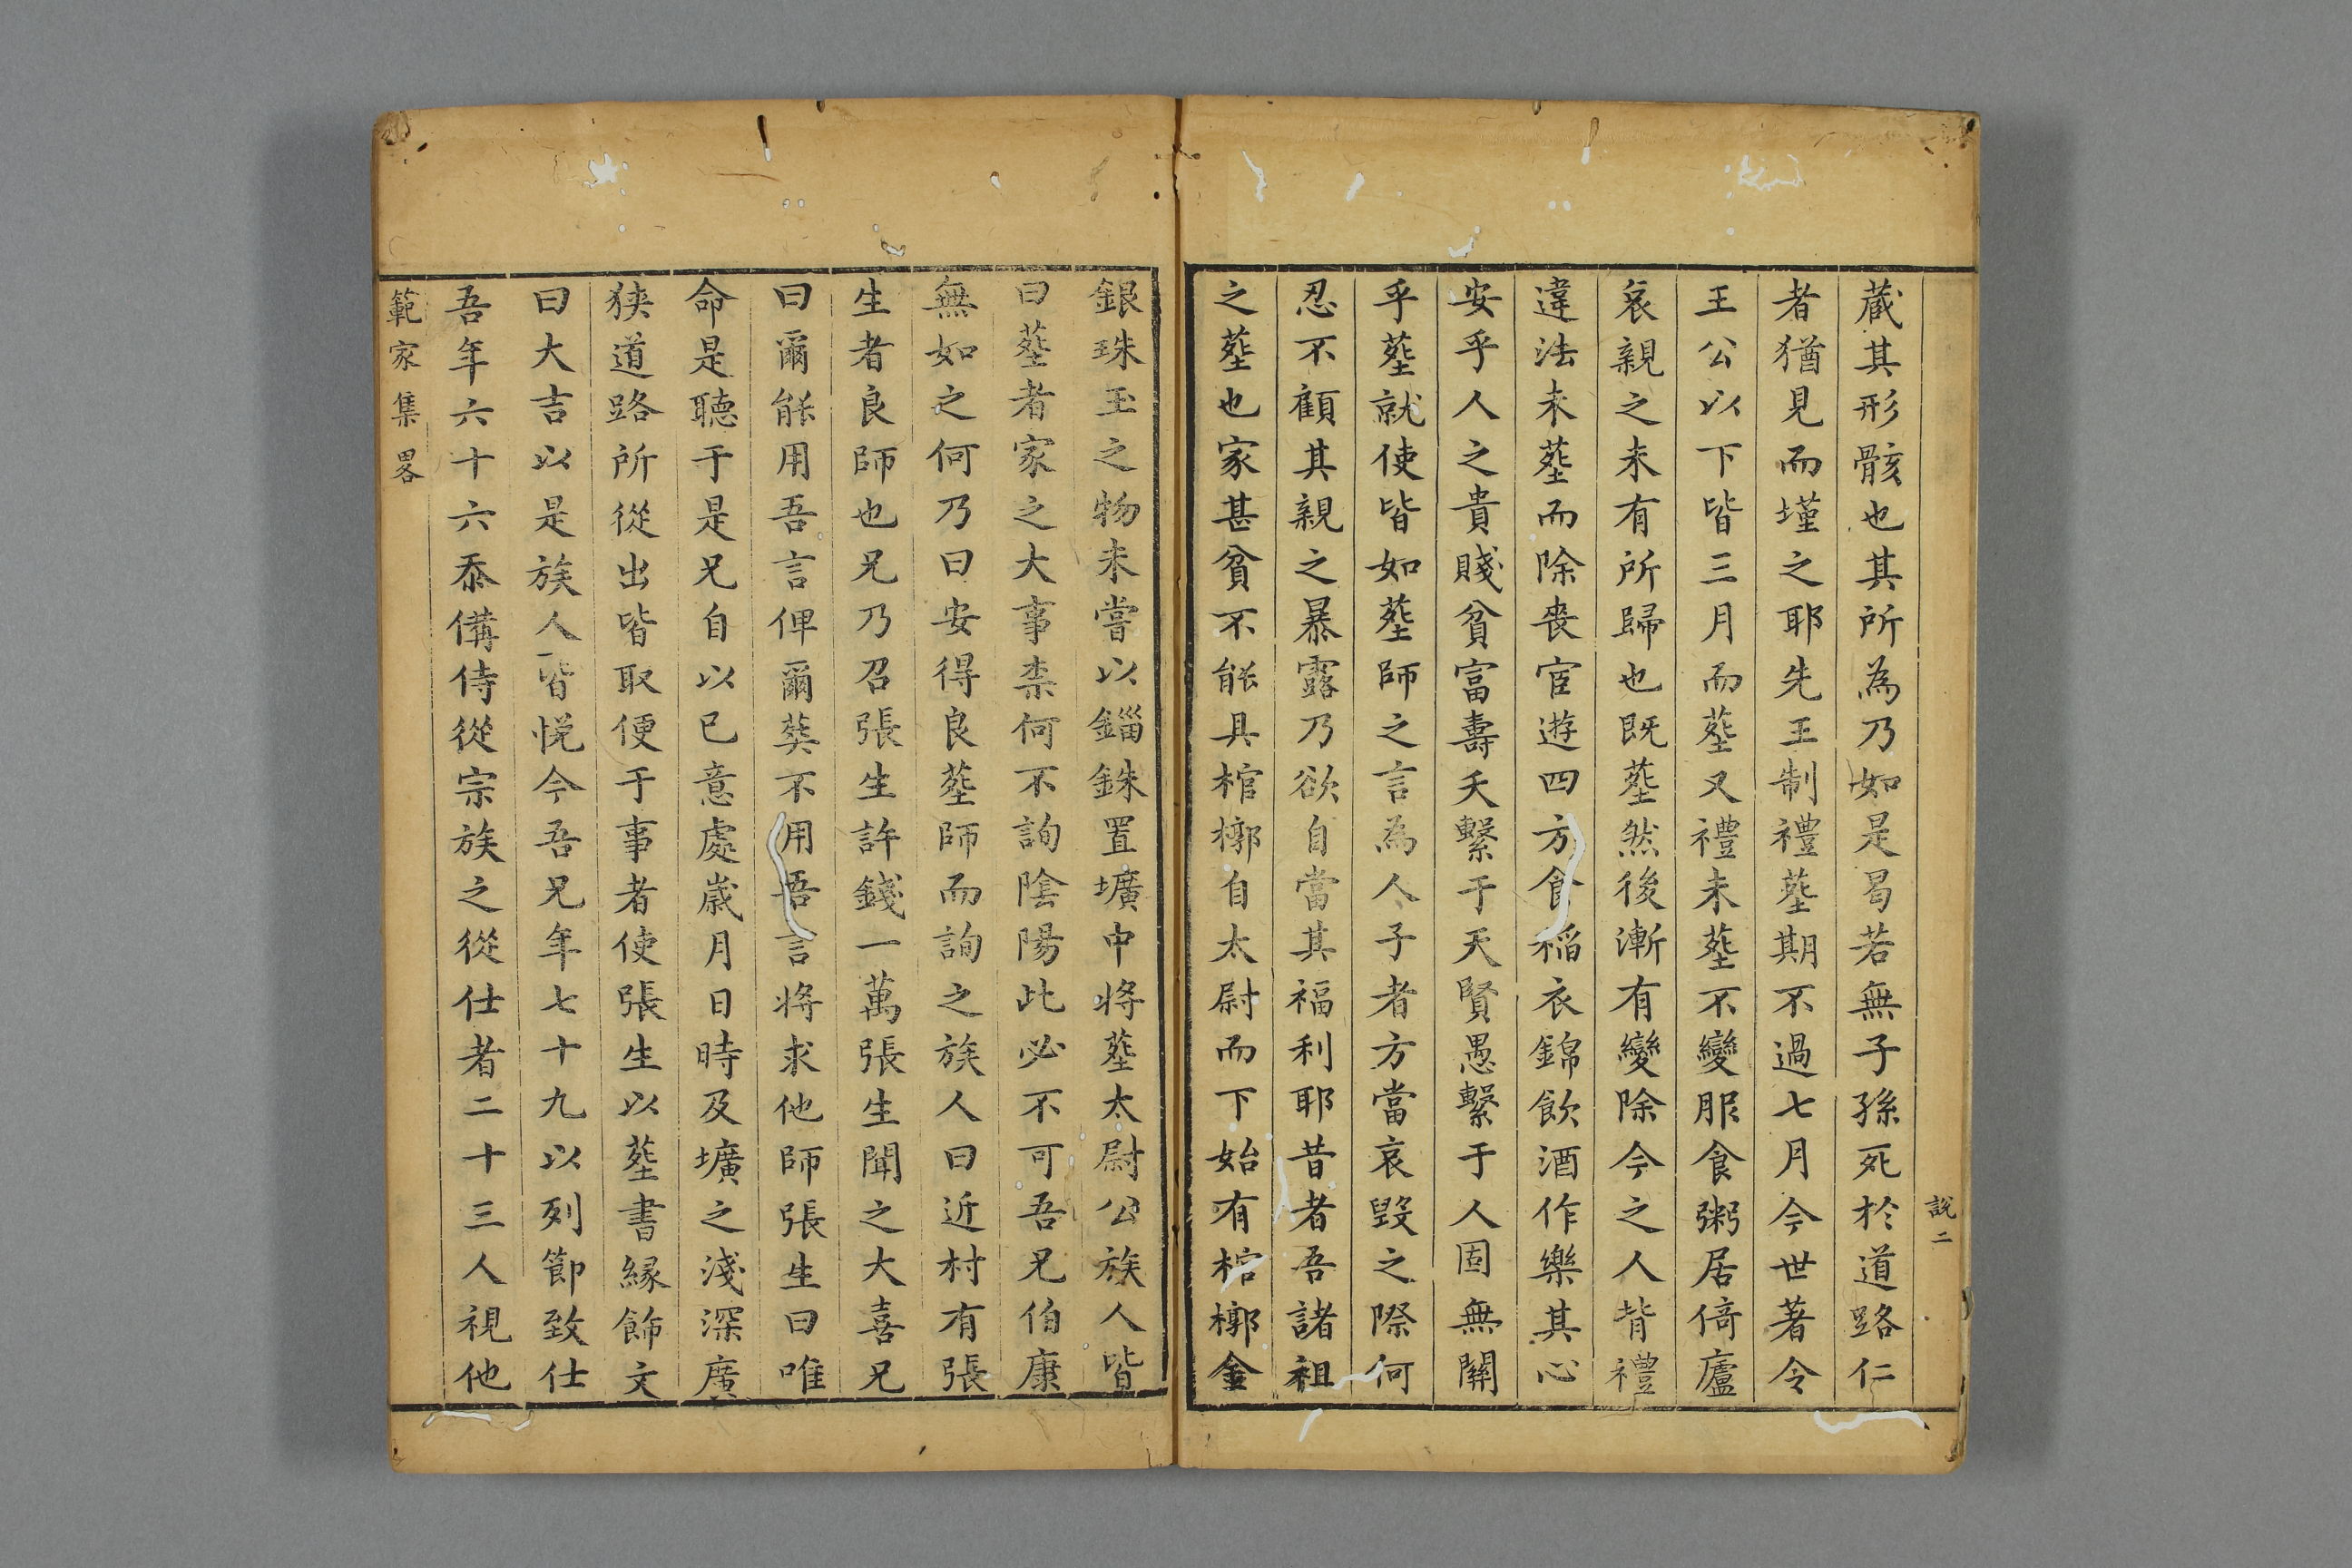 説二
蔵其形骸也其所為乃如是曷若無子孫死於道路仁
者猶見而墐之耶先王制禮塟期不過七月今世著令
王公以下皆三月而塟又禮未塟不變服食粥居倚廬
哀親之未有所歸也既塟然後漸有變除今之人背禮
違法未塟而除喪宦遊四方食稻衣錦飲酒作樂其心
安乎人之貴賤貧富壽夭繫于天賢愚繫于人固無關
乎塟就使皆如塟師之言為人子者方當哀毀之際何
忍不顧其親之暴露乃欲自當其福利耶昔者吾諸祖
之塟也家甚貧不能具棺槨自太尉而下始有棺槨金
銀珠玉之物未嘗以錙銖置壙中将塟太尉公族人皆
曰塟者家之大事柰何不詢陰陽此必不可吾兄伯康
無如之何乃曰安得良塟師而詢之族人曰近村有張
生者良師也兄乃召張生許錢一萬張生聞之大喜兄
曰爾能用吾言俾爾葬不用吾言将求他師張生曰唯
命是聽于是兄自以已意處歲月日時及壙之淺深廣
狹道路所從出皆取便于事者使張生以塟書緣飾文
曰大吉以是族人皆悅今吾兄年七十九以列節致仕
吾年六十六忝備侍從宗族之從仕者二十三人視他
範家集畧